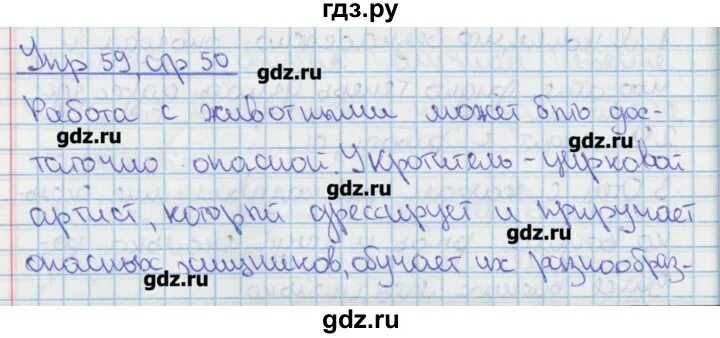 гдз.ру
Упр 59, стр 50
gdz.ru
Работа с животными может быть дос-
gdz.ru
gdz.ru
таточно опасной. Укротитель - цирковой
gdz.ru
артист, который дрессирует и приручает
gdz.ru
опасных хищников, обучает их разнообраз-
gdz.ru
gdz.ru